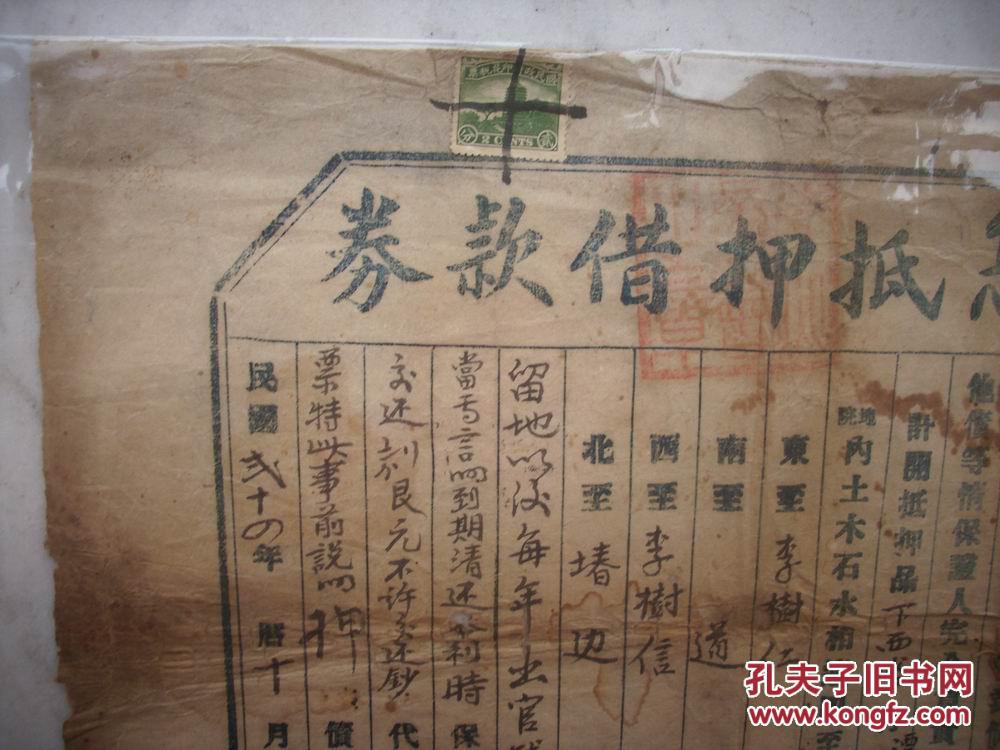 國民政府印花稅票
貳分
2 CENTS
抵押借款券
他債等情保證人完
計開抵押品下西
地院內土木石水相
東至李樹
南至道
西至李樹信
北至堾边
留地以後每年出官
當局言明到期清还本利時 保
交还銀元不許交还鈔 代
票特此事前說明 押 債
民國弍十四年 曆十月
孔夫子旧书网
www.kongfz.com